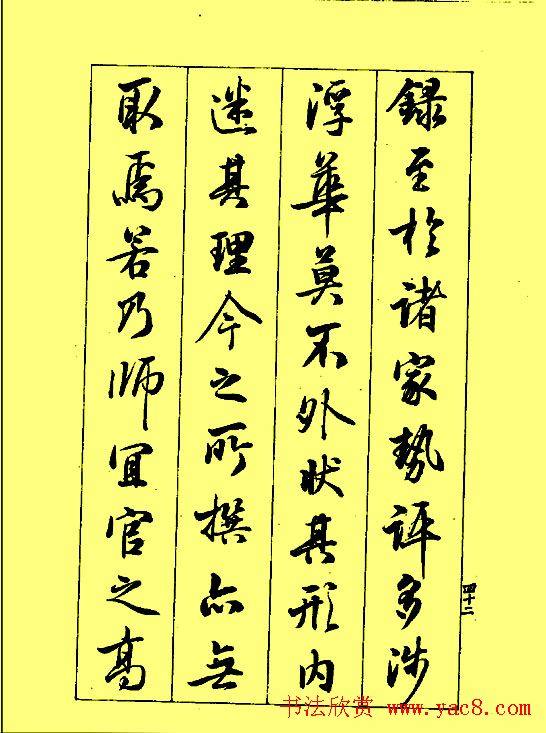 録至於諸家勢評多涉
浮華莫不外狀其形內
迷其理今之所撰亦無
取焉若乃師宜官之高
四十二
书法欣赏 www.yac8.com